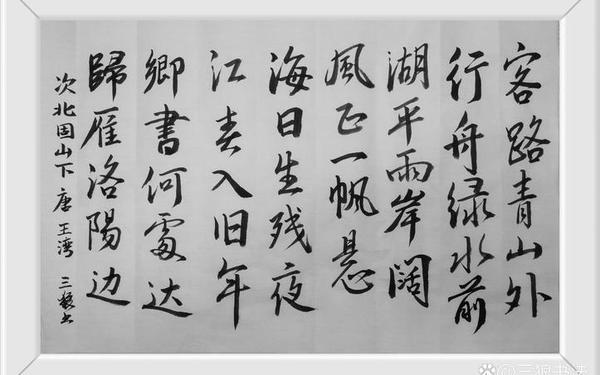 客路青山外
行舟绿水前
湖平兩岸阔
風正一帆悬
海日生残夜
江春入旧年
鄉書何處达
歸雁洛陽边
次北固山下 唐 王湾 三狼书
@三狼书法